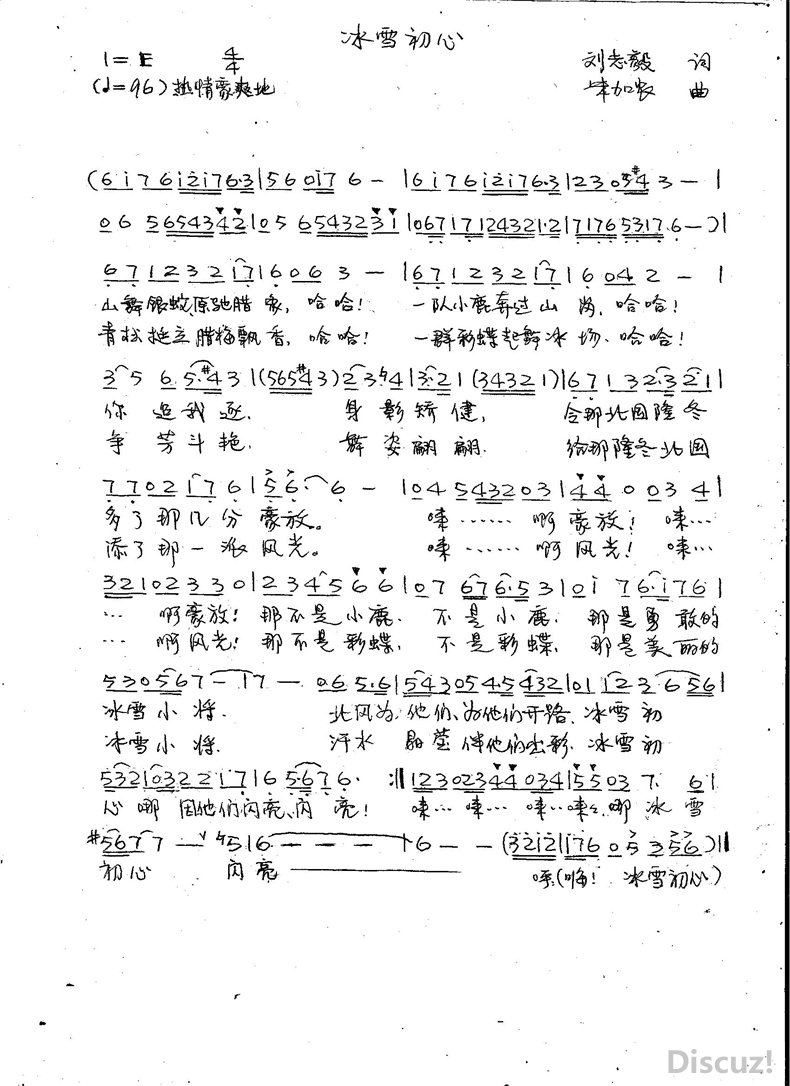 冰雪初心
1=E 4/4 刘志毅 词
(♩=96)热情豪爽地 加农 曲
(6 i 7 6 i2i76·3|5 6 0i7 6 - |6 i 7 6 i2i76·3|2 3 0 5#4 3 - |
0 6 5654342|0 5 6543231|0671712432 1·2|717653176 -)|
6 7 1 2 3 2 17|6 0 6 3 - |6 7 1 2 3 2 17|6 0 4 2 - |
山舞银蛇原驰腊象,哈哈! 一队小鹿奔过山岗,哈哈!
青松挺立腊梅飘香,哈哈! 一群彩蝶起舞冰场、哈哈!
3 5 6 5·#4 3|(565#4 3) 2 3 4|3·2 1 (34321)|6 7 1 3 2·3 2 1|
你追我逐. 身影矫健, 令那北国隆冬
争芳斗艳. 舞姿翩翩. 给那隆冬北国
7 7 0 2 1 7 6|5 6· 6 - |0 4 5 4 3 2 0 3|4 4 0 0 3 4|
多了那几分豪放。 唻……啊豪放! 唻…
添了那一派风光。 唻……啊风光! 唻…
3 2 1 0 2 3 3 0|2 3 4 5 6 6|0 7 6 7 6·5 3|0 i 7 6·i 7 6|
…啊豪放! 那不是小鹿. 不是小鹿. 那是勇敢的
…啊风光! 那不是彩蝶, 不是彩蝶, 那是美丽的
5 3 0 5 6 7 - |7 - 0 6 5·6|5 4 3 0 5 4·5 4 3 2|0 1 1 2 3 6 5 6|
冰雪小将. 北风为他们、为他们开路、冰雪初
冰雪小将. 汗水晶莹伴他们出彩.冰雪初
5 3 2|0 3 2 2 1 7|6 5·6 7 6 6· :‖1 2 3 0 2 3 4 4 0 3 4|5 5 0 3 7 6|
心哪因他们闪亮、闪亮! 唻…唻…唻…唻…哪冰雪
#5 6 7 7 - 5 1 6 - - - | 6 - - (3 2 i 2 i|i 7 6 0 5 3 5 6)‖
初心 闪亮———— 呼(嗨! 冰雪初心)
Discuz!